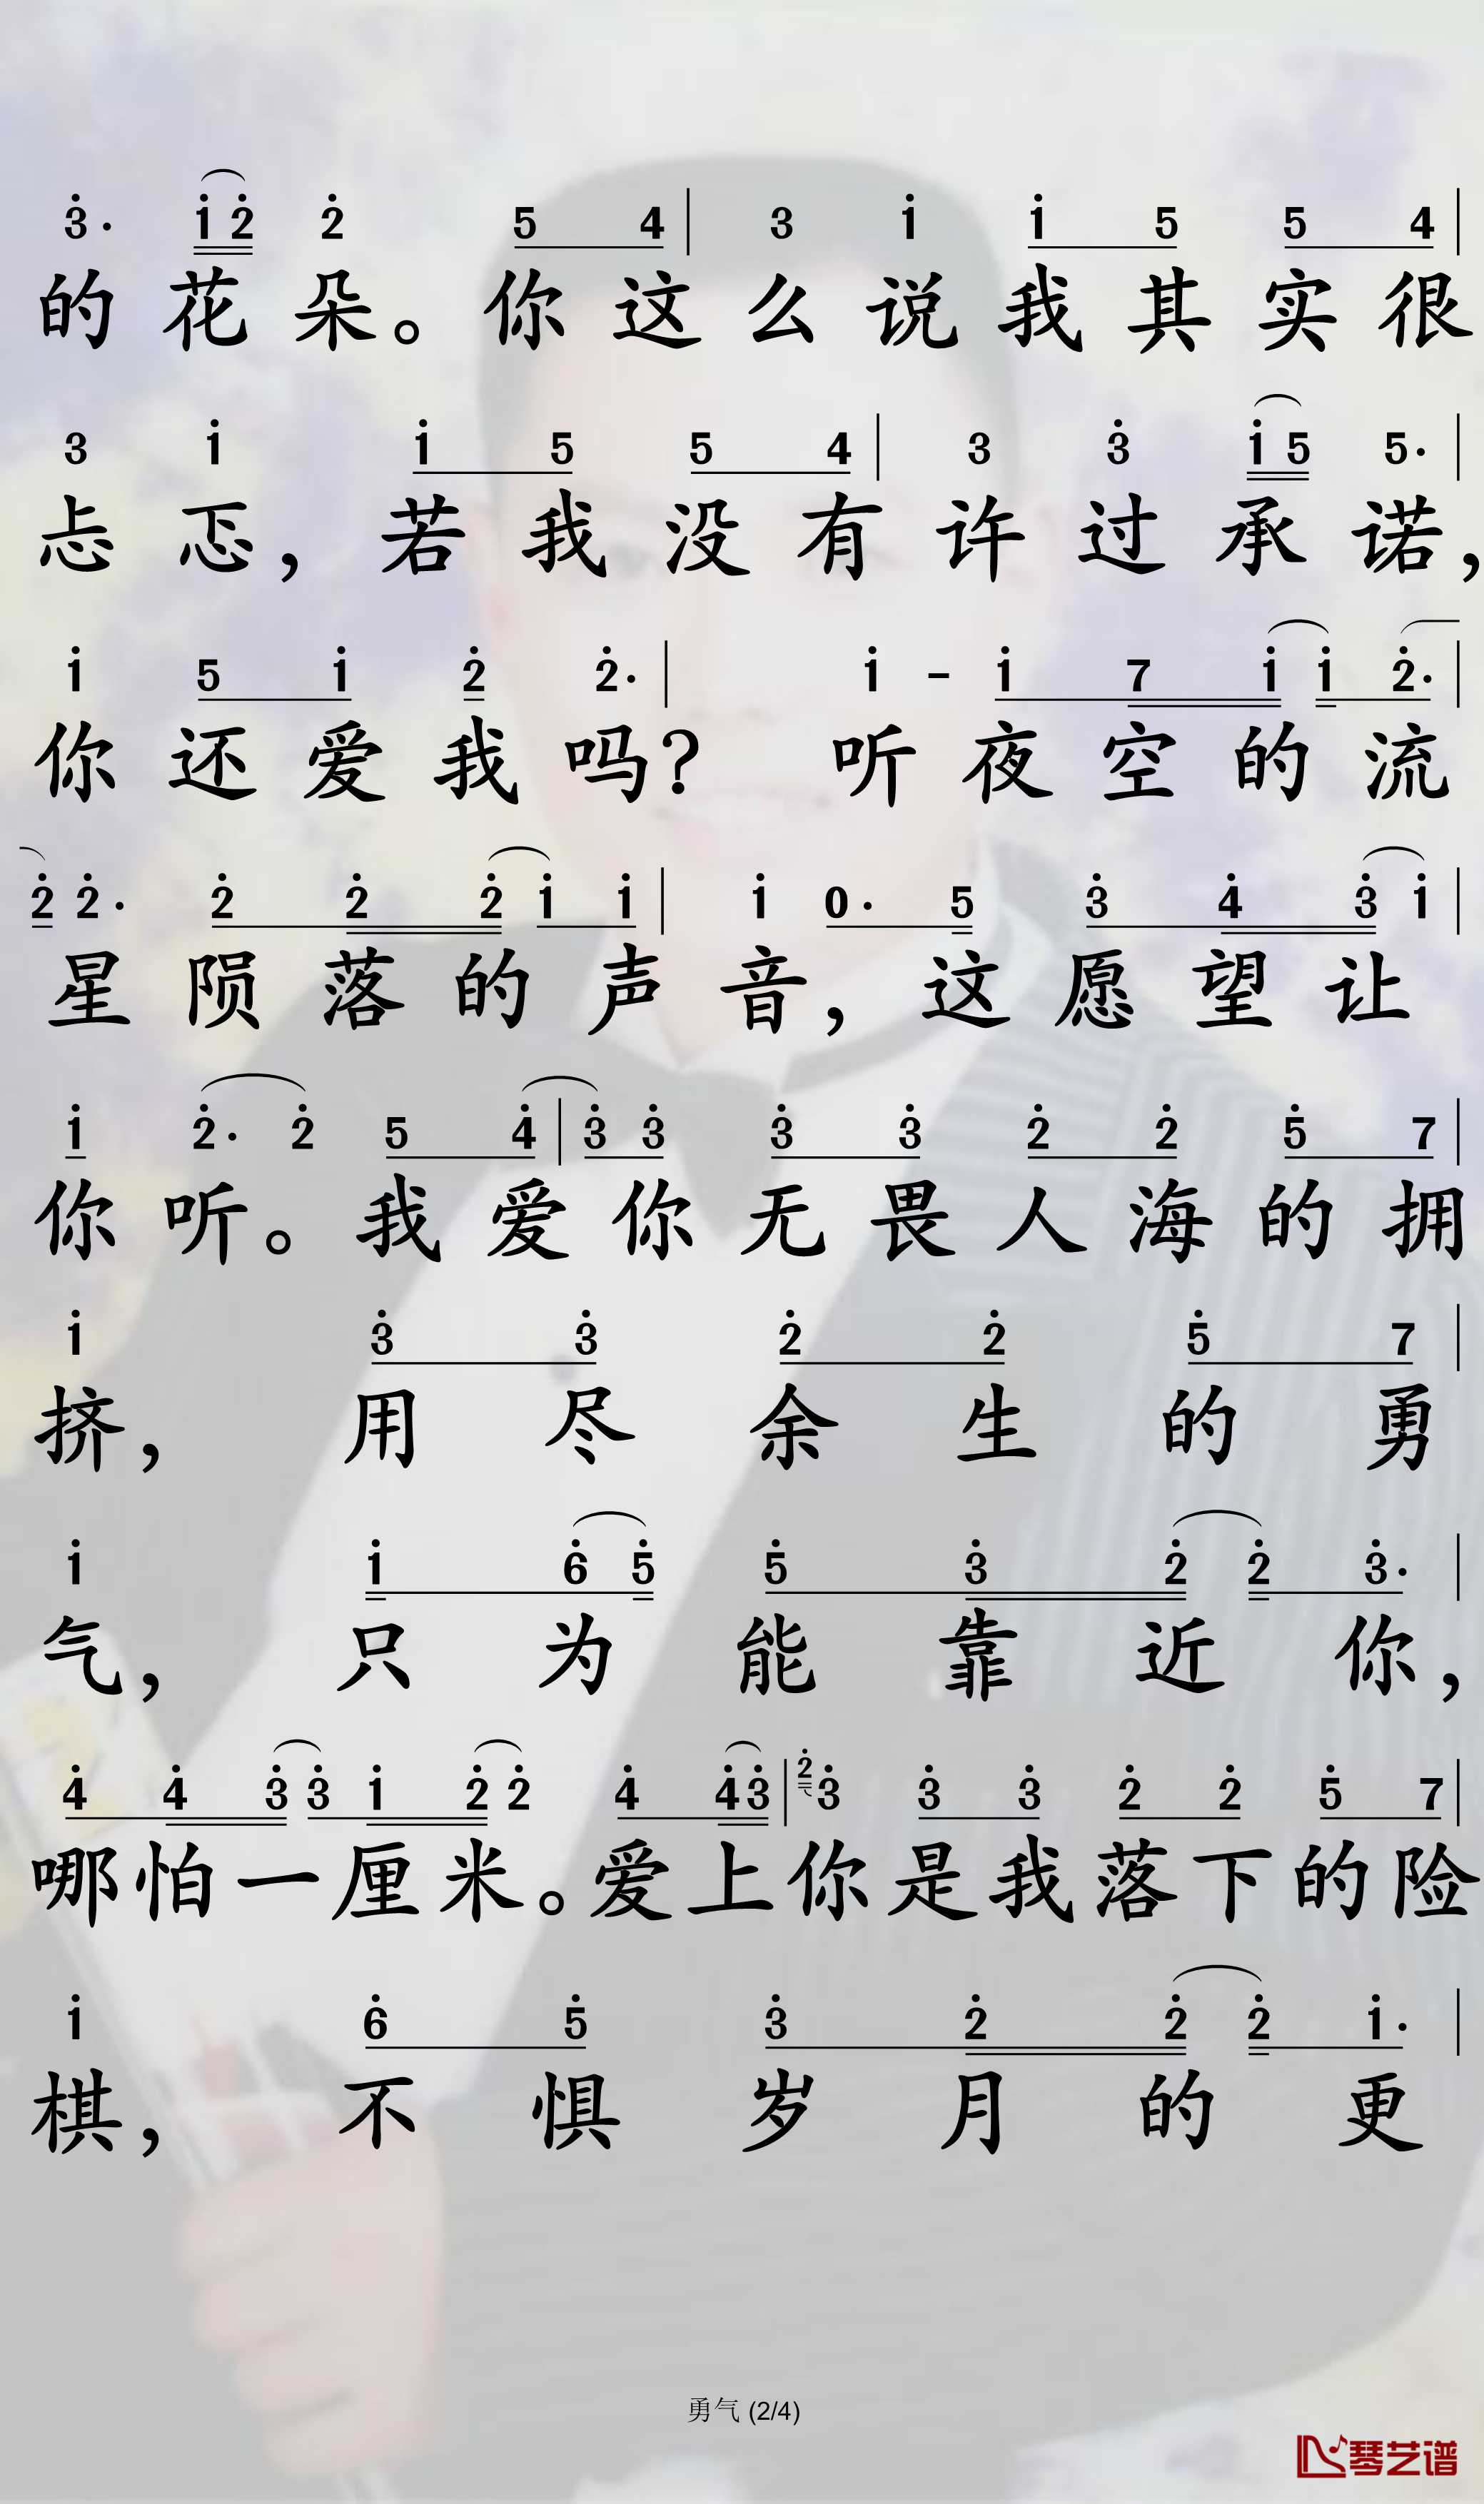 3̇· 1̇ 2̇ 2̇ 5 4 | 3 1̇ 1̇ 5 5 4 |
的花朵。你这么说我其实很
3 1̇ 1̇ 5 5 4 | 3 3̇ 1̇ 5 5· |
忐忑，若我没有许过承诺，
1̇ 5 1̇ 2̇ 2̇· | 1̇ - 1̇ 7 1̇ 1̇ 2̇· |
你还爱我吗？ 听夜空的流
2̇ 2̇· 2̇ 2̇ 2̇ 1̇ 1̇ | 1̇ 0· 5 3̇ 4̇ 3̇ 1̇ |
星陨落的声音，这愿望让
1̇ 2̇· 2̇ 5 4̇ | 3̇ 3̇ 3̇ 3̇ 2̇ 2̇ 5̇ 7 |
你听。我爱你无畏人海的拥
1̇ 3̇ 3̇ 2̇ 2̇ 5̇ 7 |
挤，用尽余生的勇
1̇ 1̇ 6̇ 5̇ 5̇ 3̇ 2̇ 2̇ 3̇· |
气，只为能靠近你，
4̇ 4̇ 3̇ 3̇ 1̇ 2̇ 2̇ 4̇ 4̇ 3̇ | 2̇ 3̇ 3̇ 3̇ 2̇ 2̇ 5̇ 7 |
哪怕一厘米。爱上你是我落下的险
1̇ 6̇ 5̇ 3̇ 2̇ 2̇ 2̇ 1̇· |
棋，不惧岁月的更
勇气 (2/4)
琴艺谱